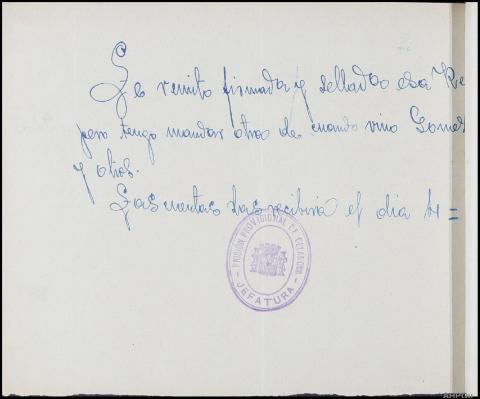 Le remito firmada y sellada esa Re
pero tengo mandar otro de cuando vino Gomes
y otros.
Las mentas las recibiria el dia 4=
PRISION PROVISIONAL DE CELANOVA
JEFATURA